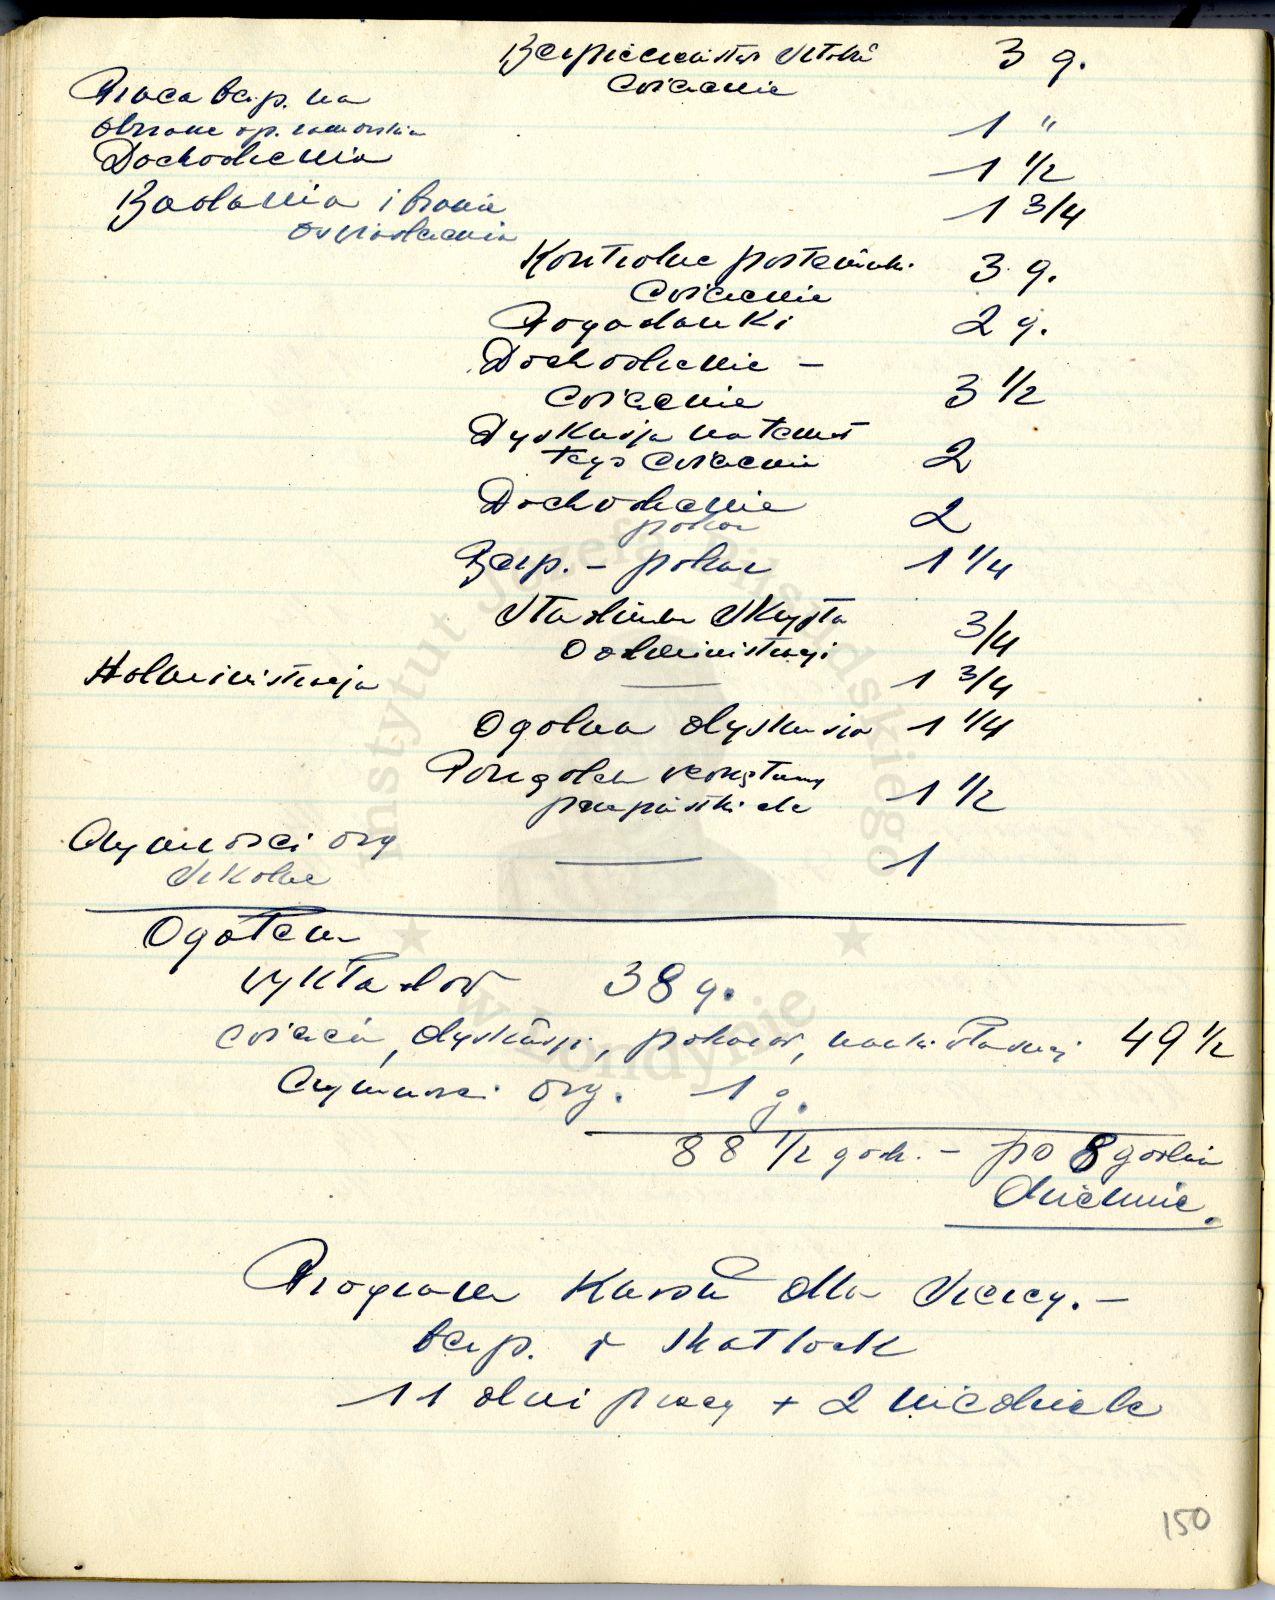 Bezpieczeństwo Sztabu 3 g.
ćwiczenie
Praca bezp. na
obszarze op. zamorskie 1 "
Dochodzenia 1 1/2
Badania i branie 1 3/4
oświadczenia
Kontrolne posterunki 3 g.
ćwiczenie
Pogadanki 2 g.
Dochodzenie –
ćwiczenie 3 1/2
Dyskusja na temat
tego ćwiczenia 2
Dochodzenie 2
pokaz
Bezp. – pokaz 1 1/4
Skrypta 3/4
administracji
Administracja — 1 3/4
Ogólna dyskusja 1 1/4
1 1/2
Czynności org — 1
szkolne
Ogółem
wykładów 38 g.
ćwiczeń, dyskusji, pokazów, nauki własnej 49 1/2
Czynności org. 1 g.
88 1/2 godz. – po 8 godzin
dziennie.
Program Kursu dla Oficerów –
bezp. w Matlock
11 dni pracy + 2 niedziele
150
Instytut Józefa Piłsudskiego
w Londynie